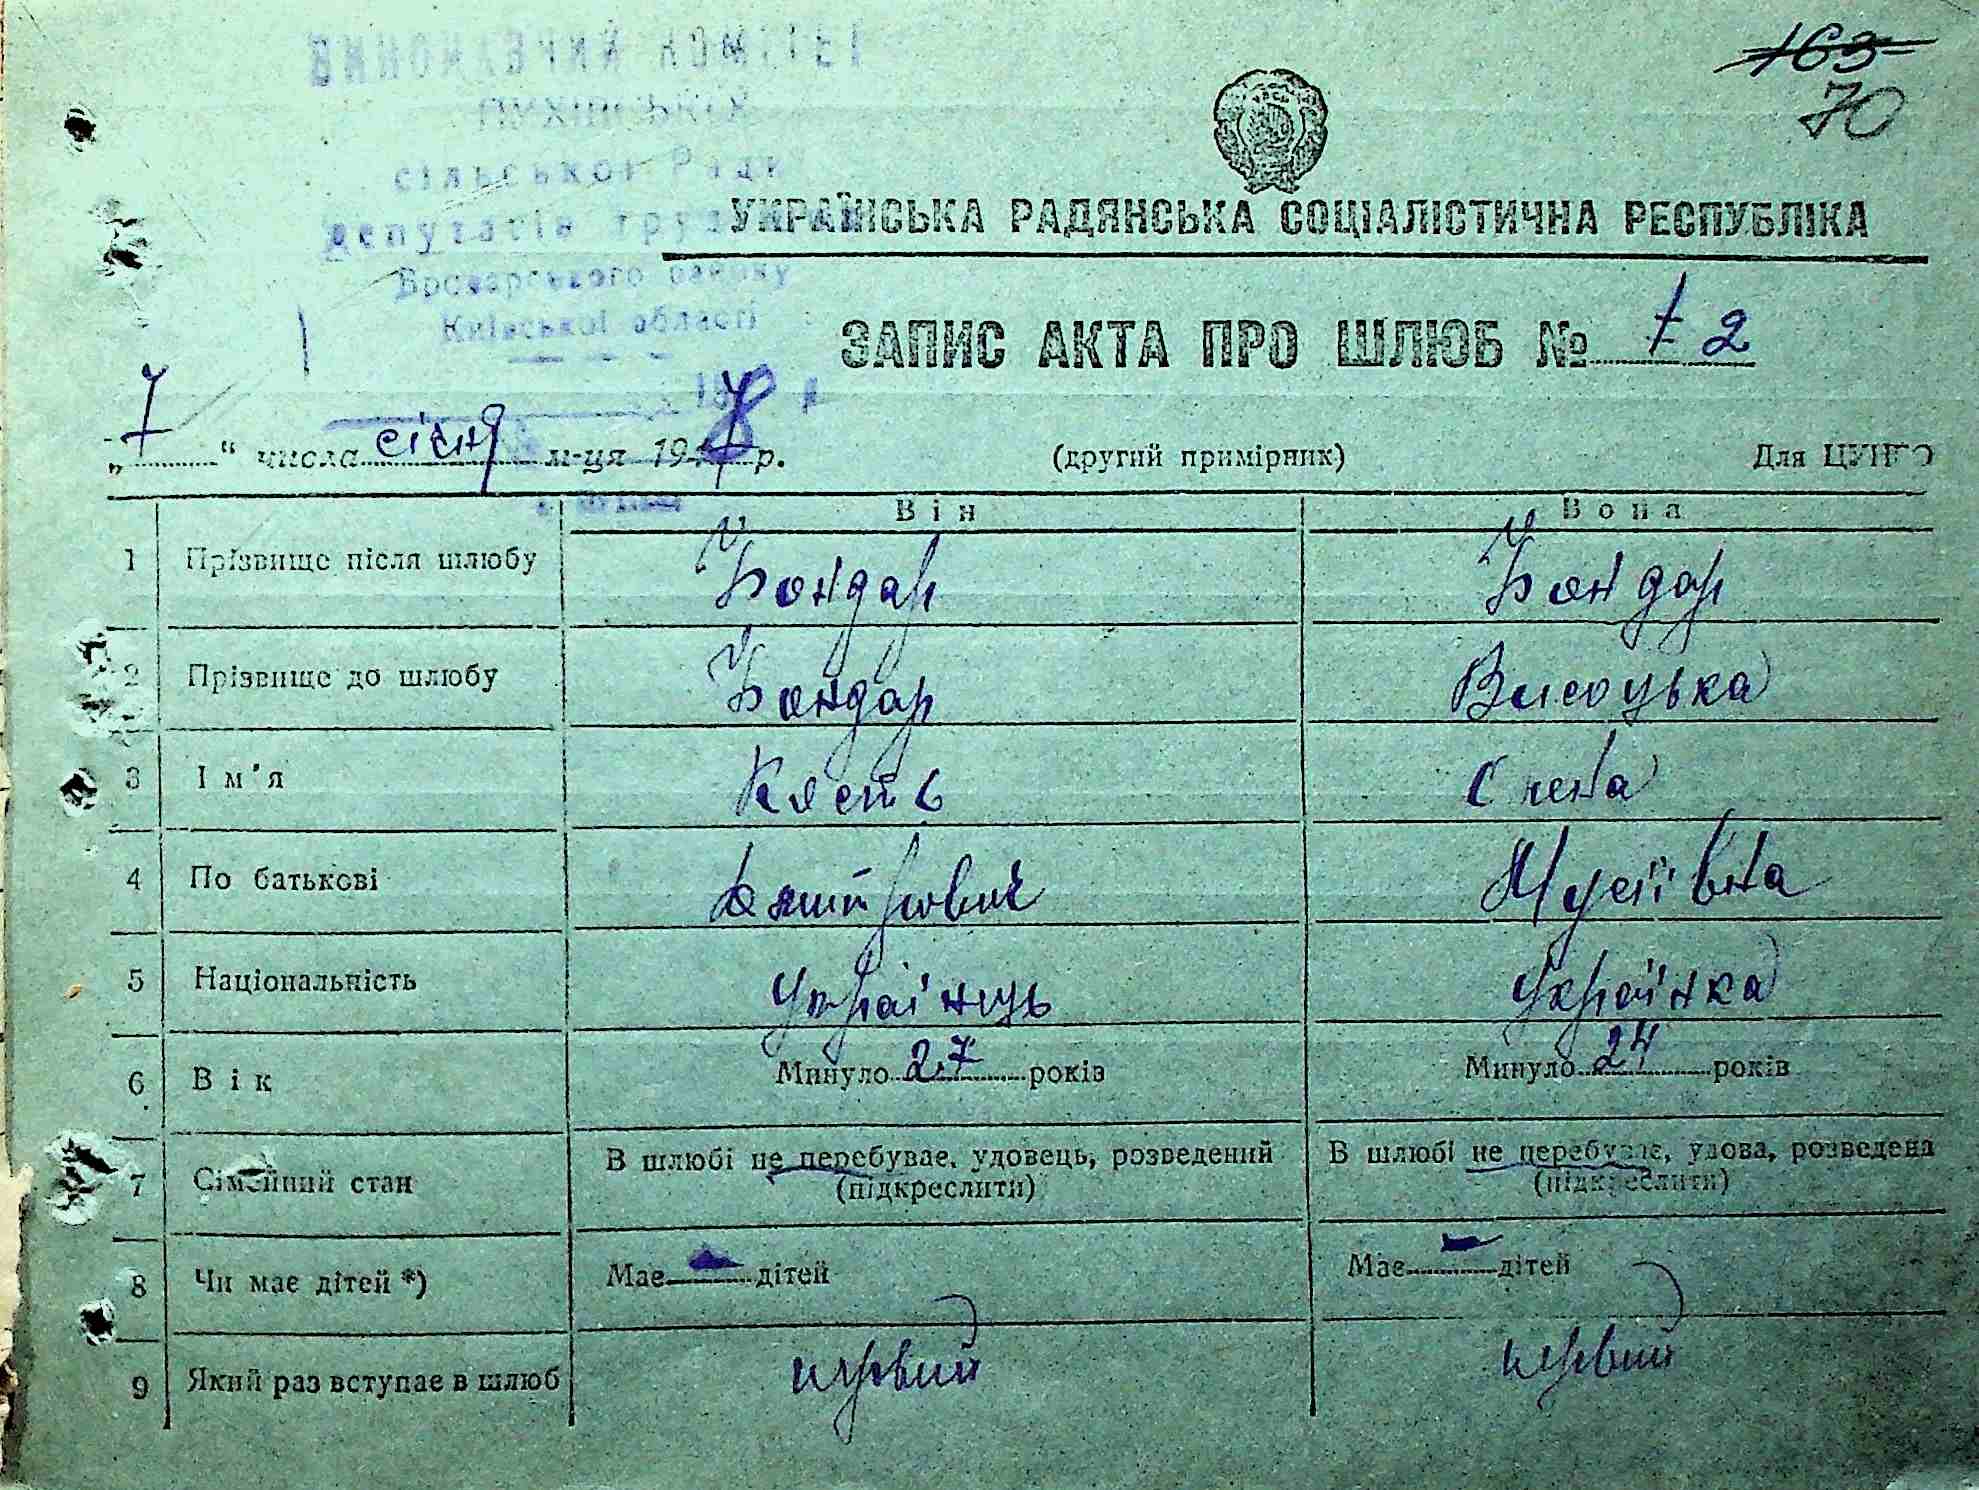 ВИКОНАВЧИЙ КОМІТЕТ
ПУХІВСЬКОЇ
сільської Ради
депутатів труд
Броварського району
Київської області
163
70
УКРАЇНСЬКА РАДЯНСЬКА СОЦІАЛІСТИЧНА РЕСПУБЛІКА
ЗАПИС АКТА ПРО ШЛЮБ № 2
„7“ числа січня м-ця 1948 р. (другий примірник) Для ЦУНГО
Він Вона
1 Прізвище після шлюбу Бондар Бондар
2 Прізвище до шлюбу Бондар Висоцька
3 Ім'я Кость Олена
4 По батькові Дмитрович Мусіївна
5 Національність Українець Українка
6 Вік Минуло 27 років Минуло 24 років
7 Сімейний стан В шлюбі не перебуває, удовець, розведений (підкреслити) В шлюбі не перебуває, удова, розведена (підкреслити)
8 Чи має дітей *) Має — дітей Має — дітей
9 Який раз вступає в шлюб первий первий